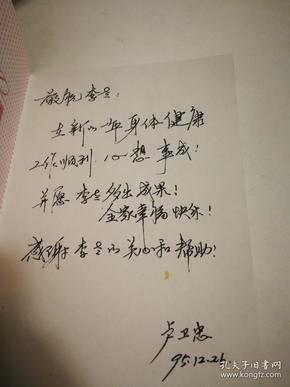 敬祝李老：
在新的一年身体健康
工作顺利、心想事成！
并愿李老多出成果！
全家幸福快乐！
感谢李老的关心和帮助！
卢卫忠
95.12.26.
孔夫子旧书网